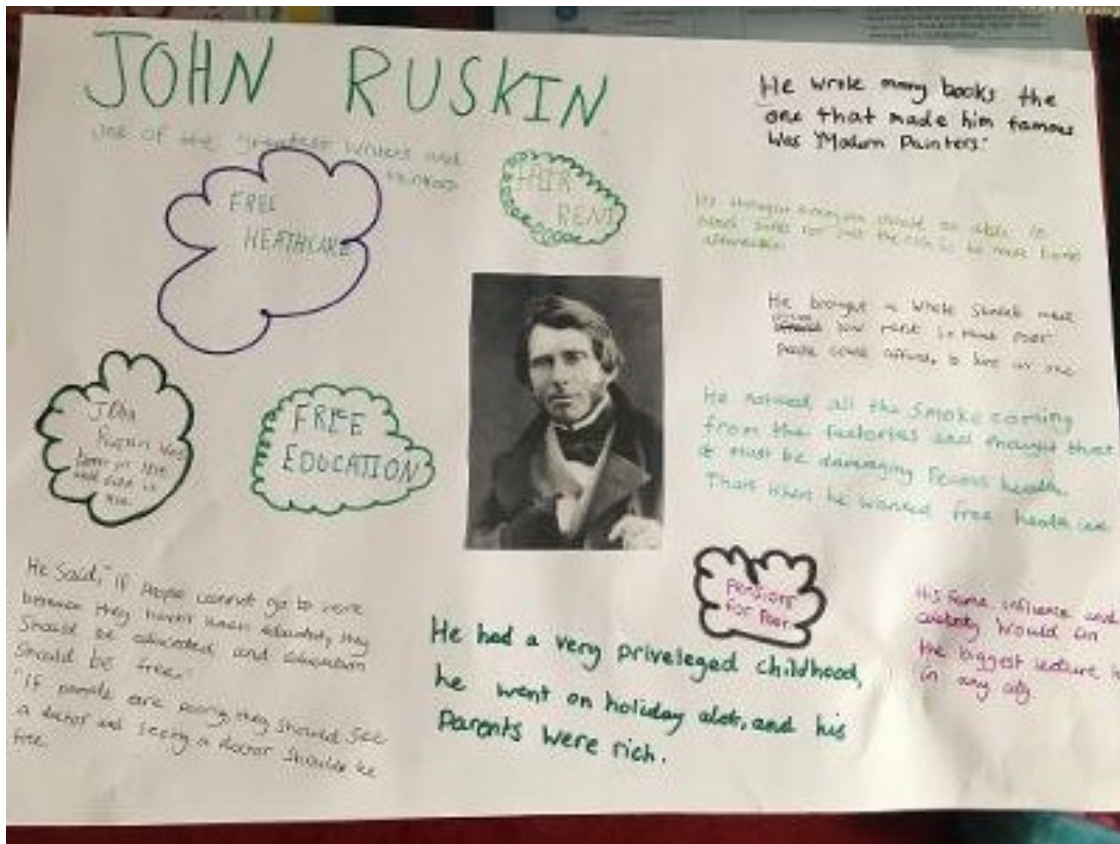 JOHN RUSKIN
one of the greatest writers and
thinkers
FREE
HEATHCARE
FAIR
RENT
He wrote many books the
one that made him famous
was "Modern Painters"
He thought everyone should be able to
not just the rich so he made
affordable
He brought a whole street
low rent so that poor
people could afford to live in one
John
Ruskin was
born in
and died in
FREE
EDUCATION
He noticed all the smoke coming
from the factories and thought that
it must be damaging health.
Thats when he wanted free
Pensions
for Poor
He said, "if people cannot go to
because they haven't been educated, they
should be educated and education
should be free."
"If people are they should see
a doctor and seeing a doctor should be
free
He had a very priveleged childhood,
he went on holiday alot, and his
Parents were rich.
His fame influence and
would
the biggest lecture
in any city